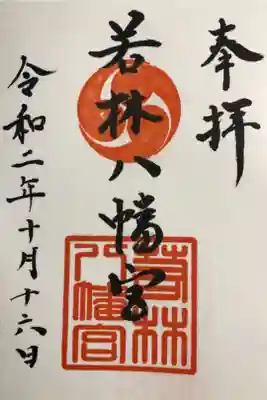 奉拝
若林八幡宮
若林
八幡宮
令和二年十月十六日